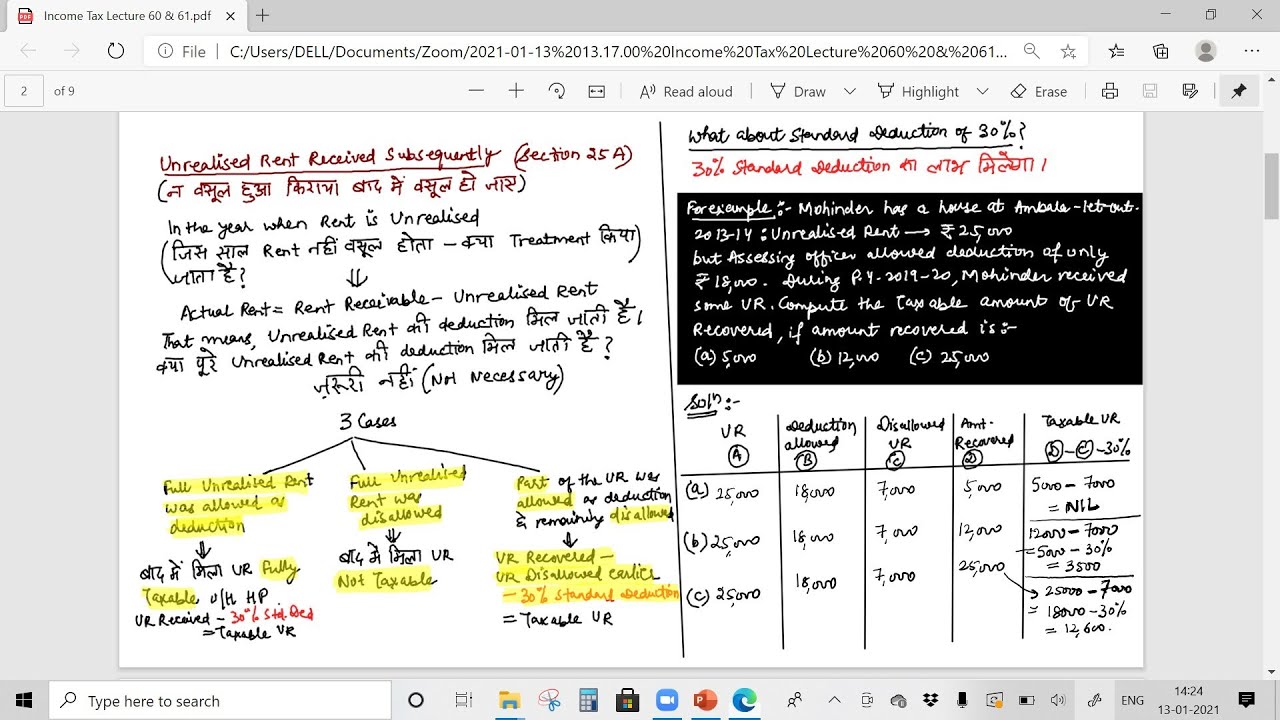 Income Tax Lecture 60 & 61.pdf
File
C:/Users/DELL/Documents/Zoom/2021-01-13%2013.17.00%20Income%20Tax%20Lecture%2060%20&%2061...
2 of 9
Read aloud
Draw
Highlight
Erase
Unrealised Rent Received Subsequently (Section 25A)
(न वसूल हुआ किराया बाद में वसूल हो जाए)
In the year when Rent is Unrealised
(जिस साल Rent नहीं वसूल होता - क्या Treatment किया
जाता है?
⇓
Actual Rent = Rent Receivable - Unrealised Rent
That means, Unrealised Rent की deduction मिल जाती है।
क्या पूरे Unrealised Rent की deduction मिल जाती है?
ज़रूरी नहीं (Not Necessary)
3 Cases
Full Unrealised Rent
was allowed as
deduction
⇓
बाद में मिला UR Fully
Taxable U/H HP
UR Received - 30% Std. Ded
= Taxable UR
Full Unrealised
Rent was
disallowed
⇓
बाद में मिला UR
Not Taxable
Part of the UR was
allowed as deduction
& remaining disallowed
⇓
UR Recovered -
UR Disallowed earlier
- 30% Standard Deduction
= Taxable UR
What about Standard Deduction of 30%?
30% Standard Deduction का लाभ मिलेगा।
For example :- Mohinder has a house at Ambala-let-out.
2013-14 : Unrealised Rent → ₹ 25,000
but Assessing officer allowed deduction of only
₹ 18,000. During P.Y-2019-20, Mohinder received
some UR. Compute the Taxable amount of UR
Recovered, if amount recovered is :-
(a) 5,000 (b) 12,000 (c) 25,000
Solⁿ :-
UR
(A)
Deduction
allowed
(B)
Disallowed
UR
(C)
Amt.
Recovered
(D)
Taxable UR
(D) - (C) - 30%
(a) 25,000 18,000 7,000 5,000 5000 - 7000
= NIL
(b) 25,000 18,000 7,000 12,000 12000 - 7000
= 5000 - 30%
= 3500
(c) 25,000 18,000 7,000 25,000 → 25000 - 7000
= 18000 - 30%
= 12,600.
Type here to search
ENG
14:24
13-01-2021